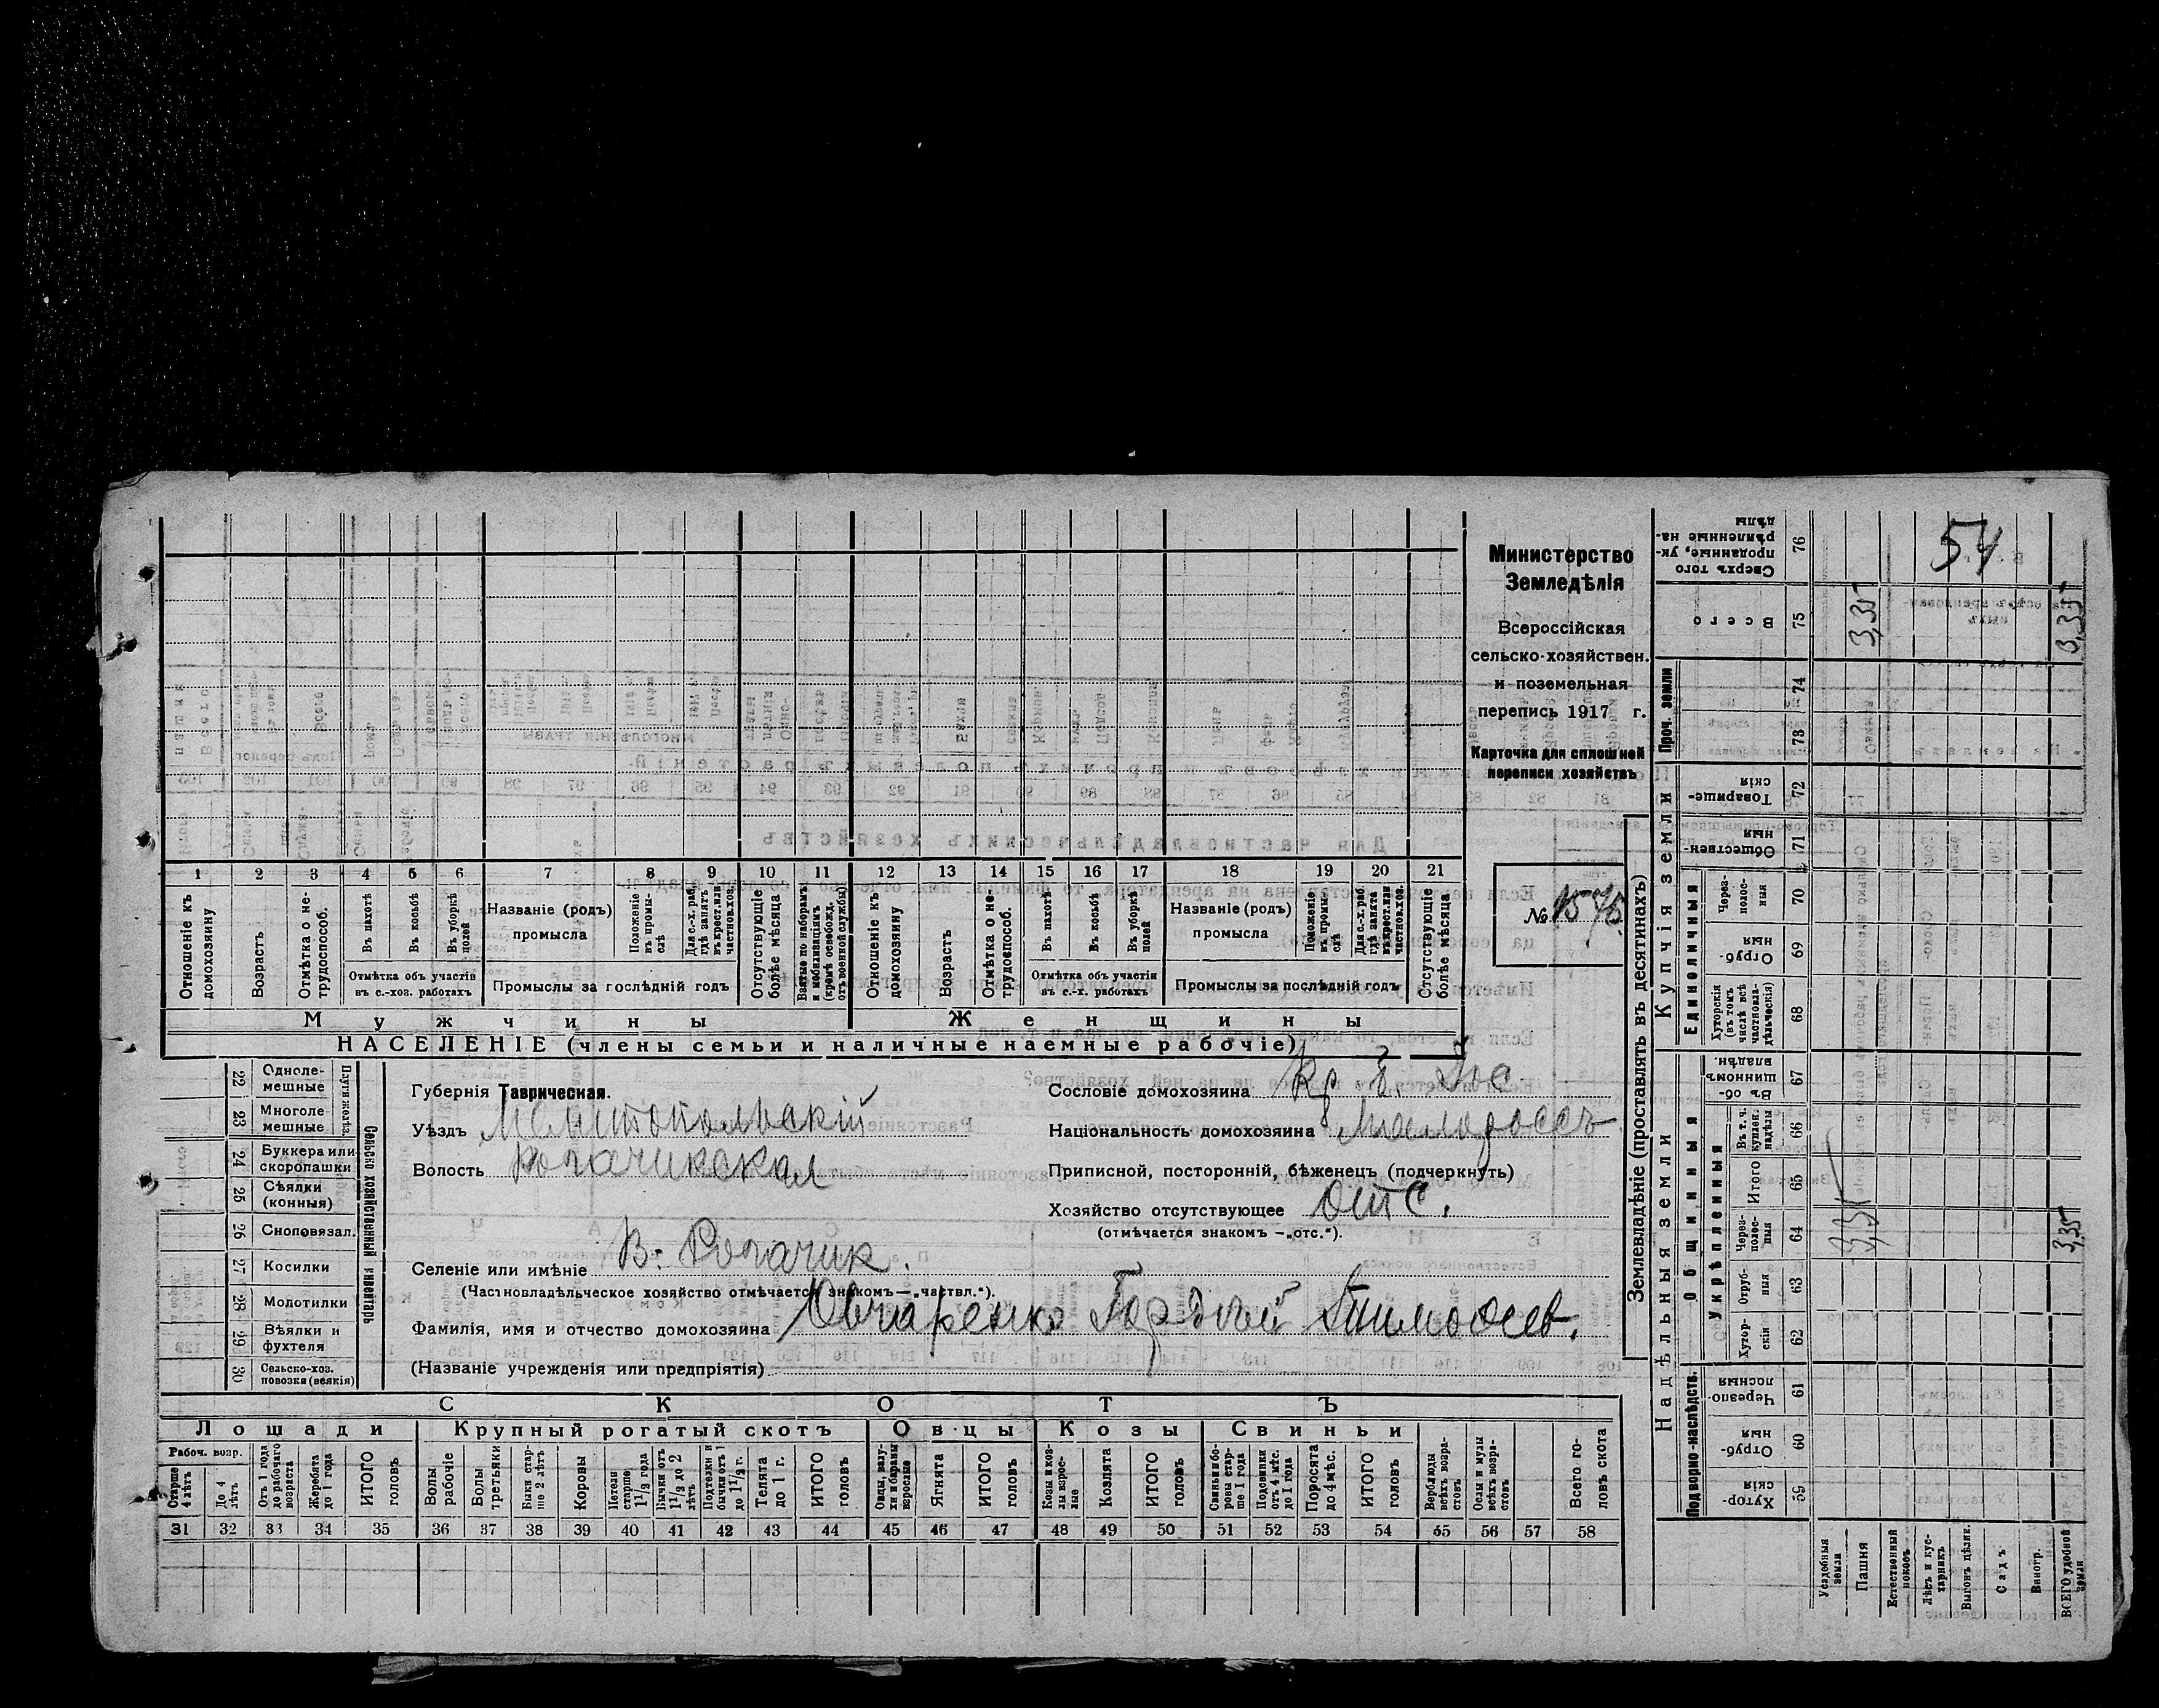 Министерство
Земледѣлія
Всероссійская
сельско-хозяйствен.
и поземельная
перепись 1917 г.
Карточка для сплошной
переписи хозяйствъ
№ 1576.
54
1 2 3 4 5 6 7 8 9 10 11 12 13 14 15 16 17 18 19 20 21
Отношеніе къ домохозяину
Возрастъ
Отмѣтка о не-трудоспособ.
Въ пахотѣ
Въ косьбѣ
Въ уборкѣ полей
Отмѣтка объ участіи въ с.-хоз. работахъ
Названіе (родъ) промысла
Положеніе въ промы-слѣ
Для с.-х. раб. гдѣ занятъ въ крест. или частнов. хоз.
Промыслы за послѣдній годъ
Отсутствующіе болѣе мѣсяца
Взятые по наборамъ и мобилизаціямъ (кромѣ освобожд. отъ военной службы)
Отношеніе къ домохозяину
Возрастъ
Отмѣтка о не-трудоспособ.
Въ пахотѣ
Въ косьбѣ
Въ уборкѣ полей
Отмѣтка объ участіи въ с.-х. работахъ
Названіе (родъ) промысла
Положеніе въ промы-слѣ
Для с.-х. раб. гдѣ занята въ крест. или частнов. хоз.
Промыслы за послѣдній годъ
Отсутствующіе болѣе мѣсяца
Мужчины Женщины
НАСЕЛЕНІЕ (члены семьи и наличные наемные рабочіе)
Сельско хозяйственный инвентарь
Плуги желѣз.
22 Одноле-мешные
23 Многоле-мешные
24 Буккера или скоропашки
25 Сѣялки (конныя)
26 Сноповязал.
27 Косилки
28 Молотилки
29 Вѣялки и фухтеля
30 Сельско-хоз. повозки (всякія)
Губернія Таврическая.
Уѣздъ Мелитопольскій
Волость Рогачикская
Селеніе или имѣніе В. Рогачик.
(Частновладѣльческое хозяйство отмѣчается знакомъ—„частвл.“).
Фамилія, имя и отчество домохозяина Овчаренко Гордѣй Тимофеев.
(Названіе учрежденія или предпріятія)
Сословіе домохозяина
Національность домохозяина Малороссъ
Приписной, посторонній, бѣженецъ (подчеркнуть)
Хозяйство отсутствующее отс.
(отмѣчается знакомъ —„отс.“).
СКОТЪ
Лошади Крупный рогатый скотъ Овцы Козы Свиньи
Рабоч. возр.
Старше 4 лѣтъ
До 4 лѣтъ
Отъ 1 года до рабочаго возраста
Жеребята до 1 года
ИТОГО головъ
Волы рабочіе
Волы третьяки
Быки стар-ше 2 лѣтъ
Коровы
Нетели старше 1½ года
Бычки отъ 1½ до 2 лѣтъ
Подтелки и бычки отъ 1 до 1½ г.
Телята до 1 г.
ИТОГО головъ
Овцы, валу-хи и бараны взрослые
Ягнята
ИТОГО головъ
Козы и коз-лы взрос-лые
Козлята
ИТОГО головъ
Свиньи и бо-ровы стар-ше 1 года
Подсвинки отъ 4 мѣс. до 1 года
Поросята до 4 мѣс.
ИТОГО головъ
Верблюды всѣхъ возра-стовъ
Ослы и мулы всѣхъ возра-стовъ
Всего го-ловъ скота
31 32 33 34 35 36 37 38 39 40 41 42 43 44 45 46 47 48 49 50 51 52 53 54 55 56 57 58
Землевладѣніе (проставлять въ десятинахъ)
Надѣльныя земли
Подворно-наслѣдств.
Хутор-скія 59
Отруб-ныя 60
Черезпо-лосныя 61
Общинныя
Укрѣпленныя
Хутор-скія 62
Отруб-ныя 63
Черезполос-ныя 64
Итого 65
Въ т. ч. куплен. надѣлы 66
Въ об-щинномъ владѣн. 67
Купчія земли
Единоличныя
Хуторскія (въ томъ числѣ всѣ частновла-дѣльческія) 68
Отруб-ныя 69
Через-полос-ныя 70
Обществен-ныя 71
Товарище-скія 72
Проч. земли
73
74
Всего 75
Сверхъ того проданные, ук-рѣпленные на-дѣлы 76
Усадебныя земли
Пашня 3,35 3,35
Естественный покосъ
Лѣсъ и кус-тарникъ
Выгонъ цѣлин.
Садъ
Виногр.
ВСЕГО удобной земли 3,35 3,35